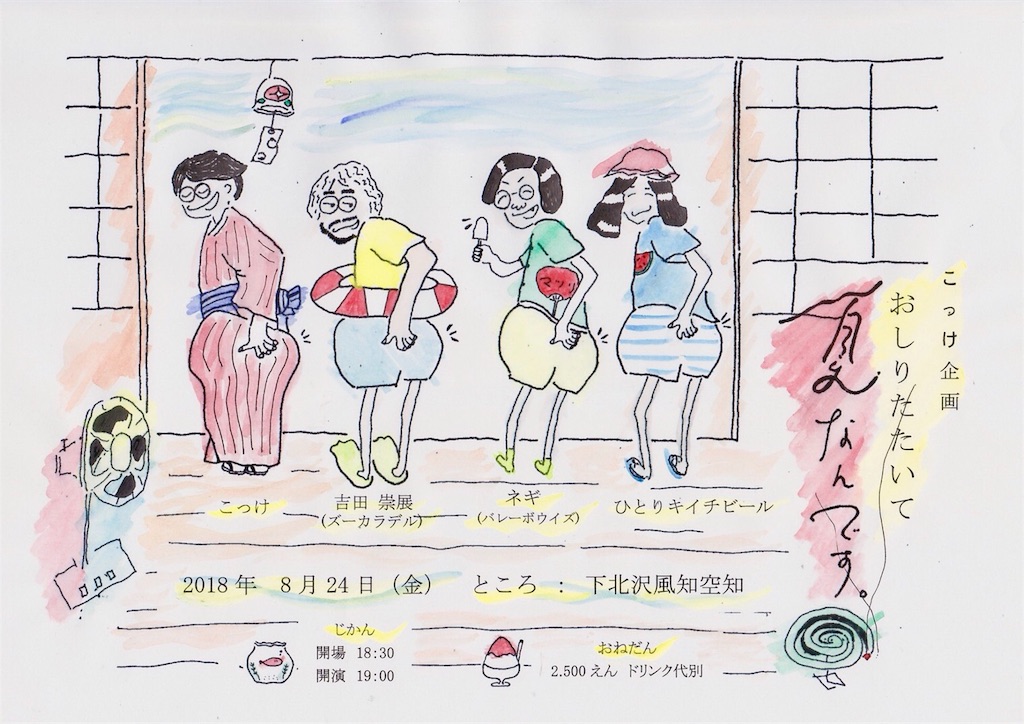 こっけ企画
おしりたたいて
夏なんです。
マツリ
こっけ
吉田 崇展
(ズーカラデル)
ネギ
(バレーボウイズ)
ひとりキイチビール
2018年 8月24日 (金) ところ : 下北沢風知空知
じかん
開場 18:30
開演 19:00
おねだん
2.500えん ドリンク代別